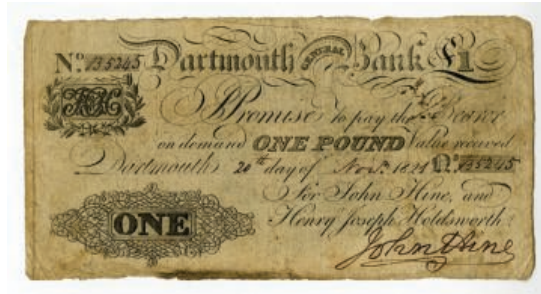 No. B5245 Dartmouth GENERAL Bank £1
I Promise to pay the Bearer
on demand ONE POUND Value received
Dartmouth 20th day of Novr. 1821 No. B5245
For John Hine, and
Henry Joseph Holdsworth
ONE
John Hine